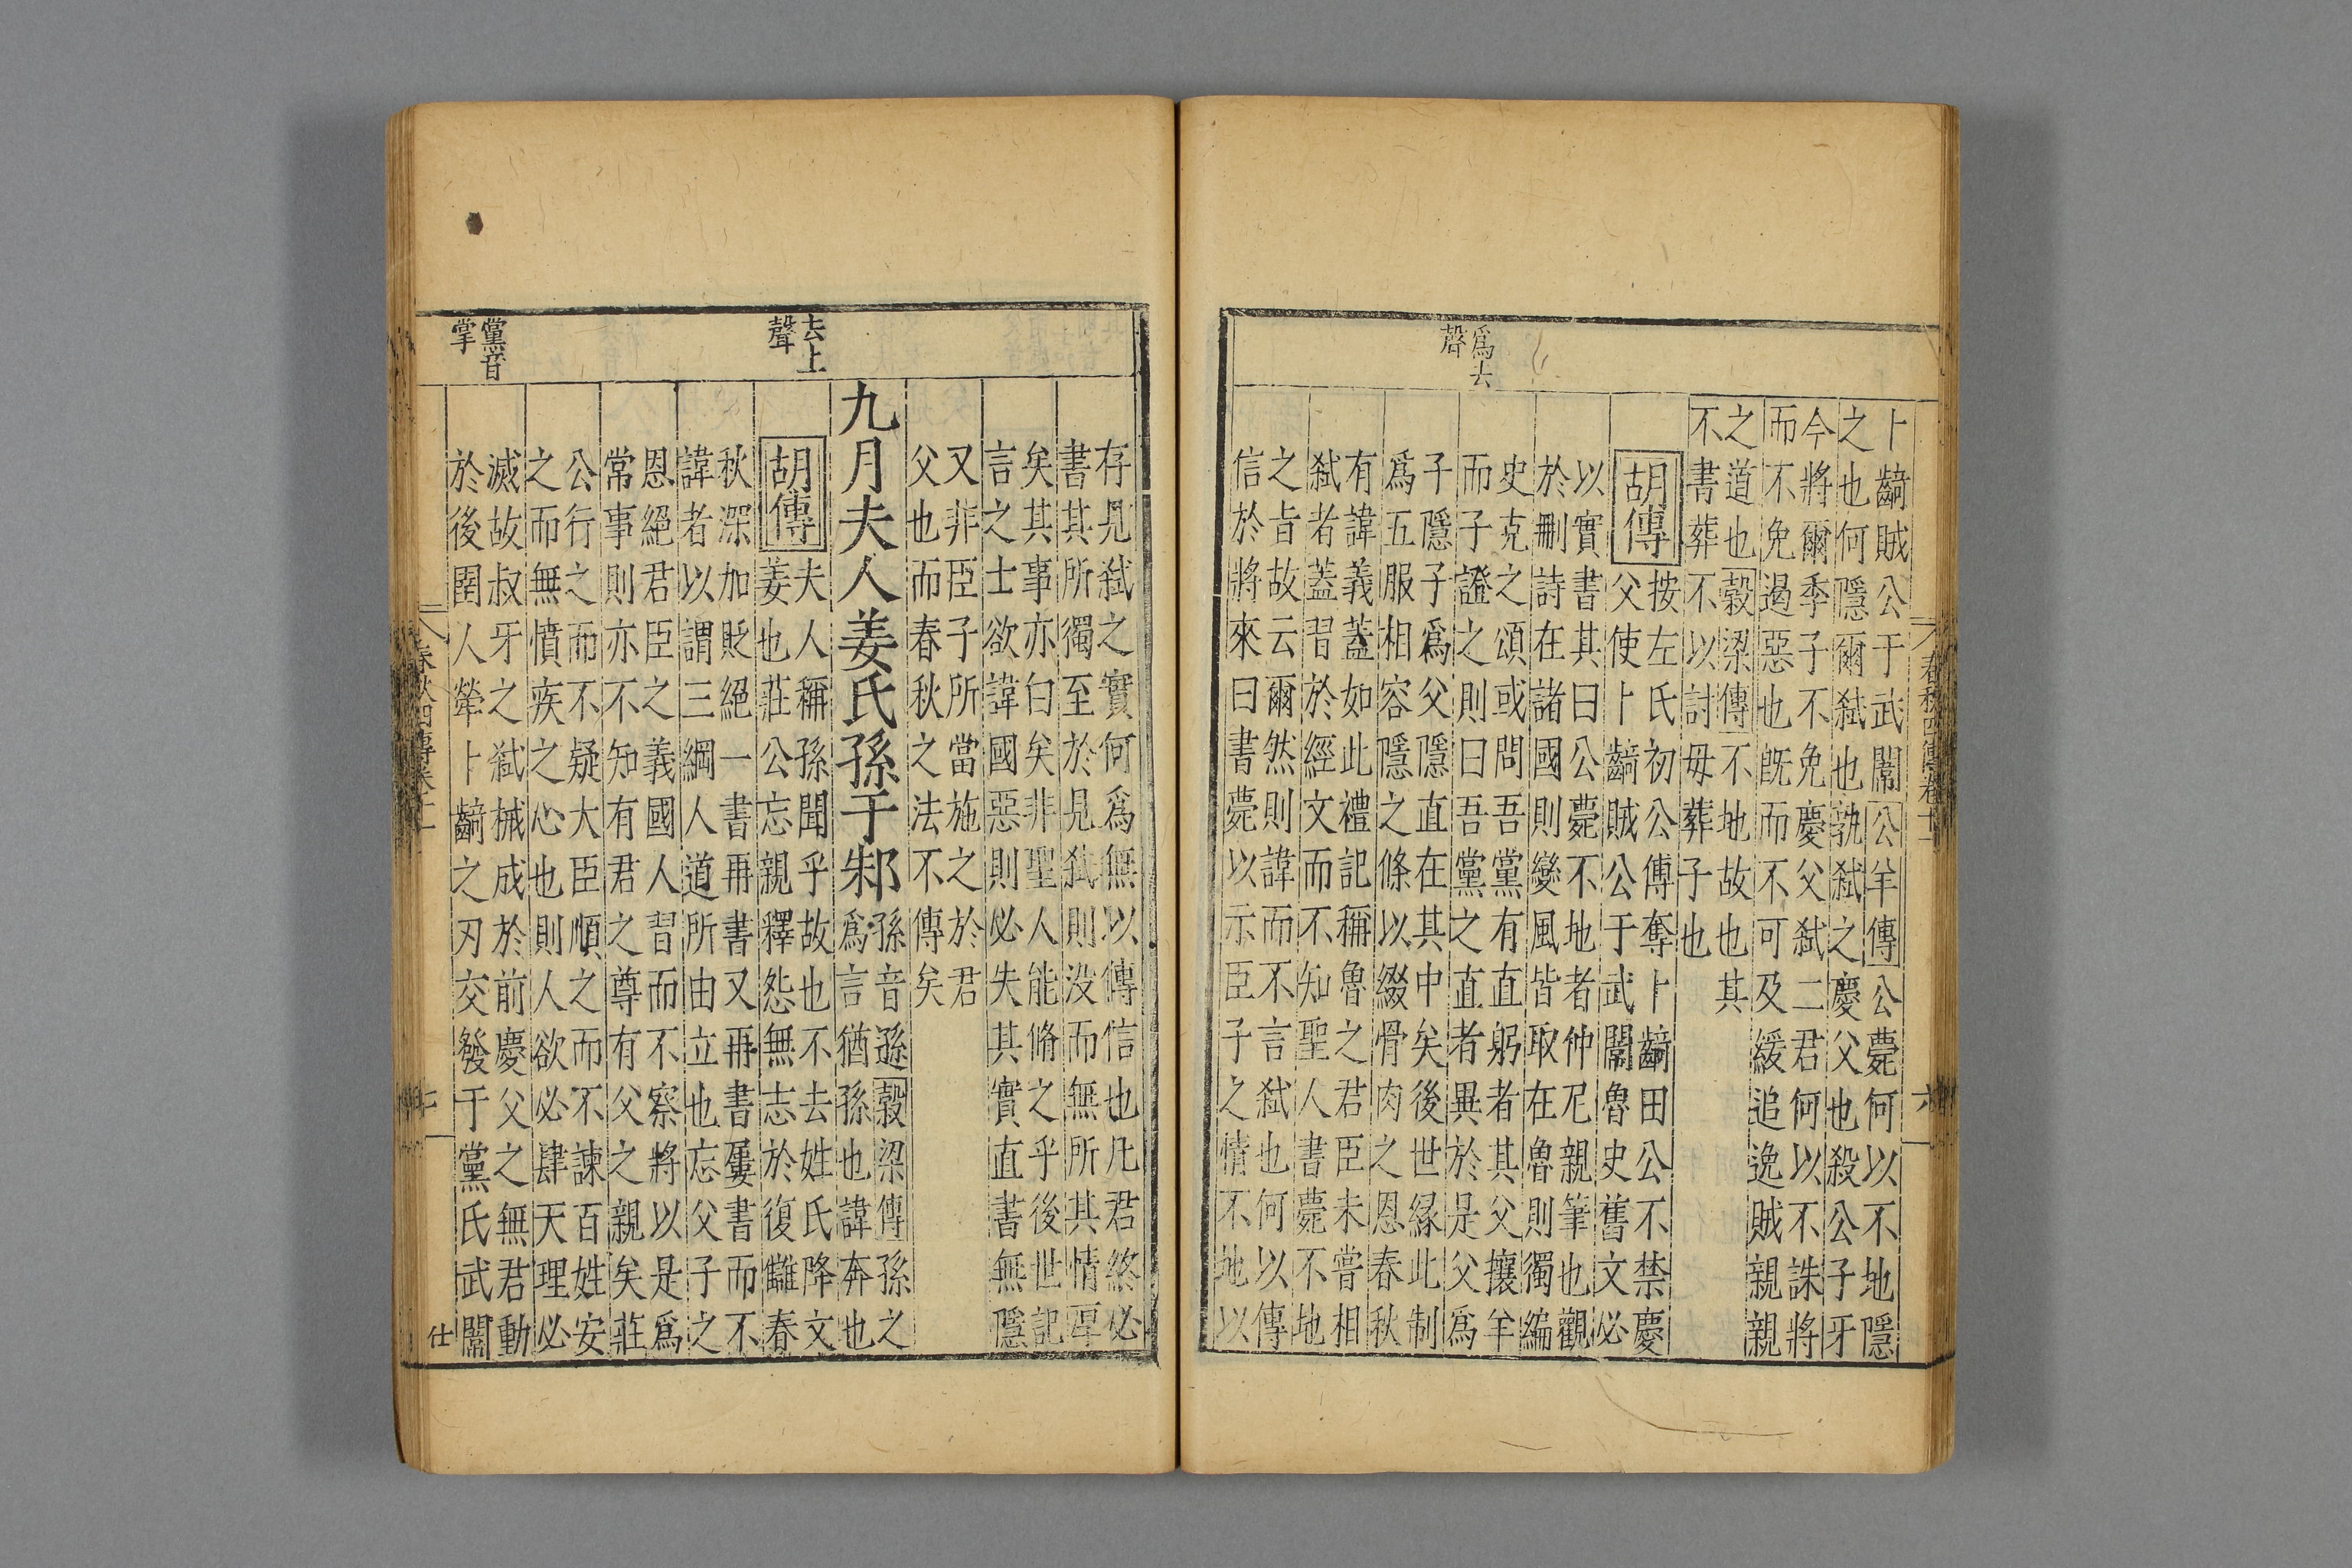 春秋四傳卷十一
六
爲去
聲
卜齮賊公于武闈公羊傳公薨何以不地隱
之也何隱爾弒也孰弒之慶父也殺公子牙
今將爾季子不免慶父弒二君何以不誅將
而不免遏惡也既而不可及緩追逸賊親親
之道也穀梁傳不地故也其
不書葬不以討毋葬子也
胡傳
按左氏初公傅奪卜齮田公不禁慶
父使卜齮賊公于武闈魯史舊文必
以實書其曰公薨不地者仲尼親筆也觀
於刪詩在諸國則變風皆取在魯則獨編
史克之頌或問吾黨有直躬者其父攘羊
而子證之則曰吾黨之直者異於是父爲
子隱子爲父隱直在其中矣後世緣此制
爲五服相容隱之條以綴骨肉之恩春秋
有諱義蓋如此禮記稱魯之君臣未嘗相
弒者蓋習於經文而不知聖人書薨不地
之旨故云爾然則諱而不言弒也何以傳
信於將來曰書薨以示臣子之情不地以
存見弒之實何爲無以傳信也凡君終必
書其所獨至於見弒則没而無所其情厚
矣其事亦白矣非聖人能脩之乎後世記
言之士欲諱國惡則必失其實直書無隱
又非臣子所當施之於君
父也而春秋之法不傳矣
去上
聲
九月夫人姜氏孫于邾
孫音遜穀梁傳孫之
爲言猶孫也諱奔也
胡傳
夫人稱孫聞乎故也不去姓氏降文
姜也莊公忘親釋怨無志於復讎春
秋深加貶絕一書再書又再書屢書而不
諱者以謂三綱人道所由立也忘父子之
恩絕君臣之義國人習而不察將以是爲
常事則亦不知有君之尊有父之親矣莊
公行之而不疑大臣順之而不諫百姓安
之而無憤疾之心也則人欲必肆天理必
滅故叔牙之弒械成於前慶父之無君動
於後圉人犖卜齮之刃交發于黨氏武闈
黨音
掌
春秋四傳卷十一
七
仕